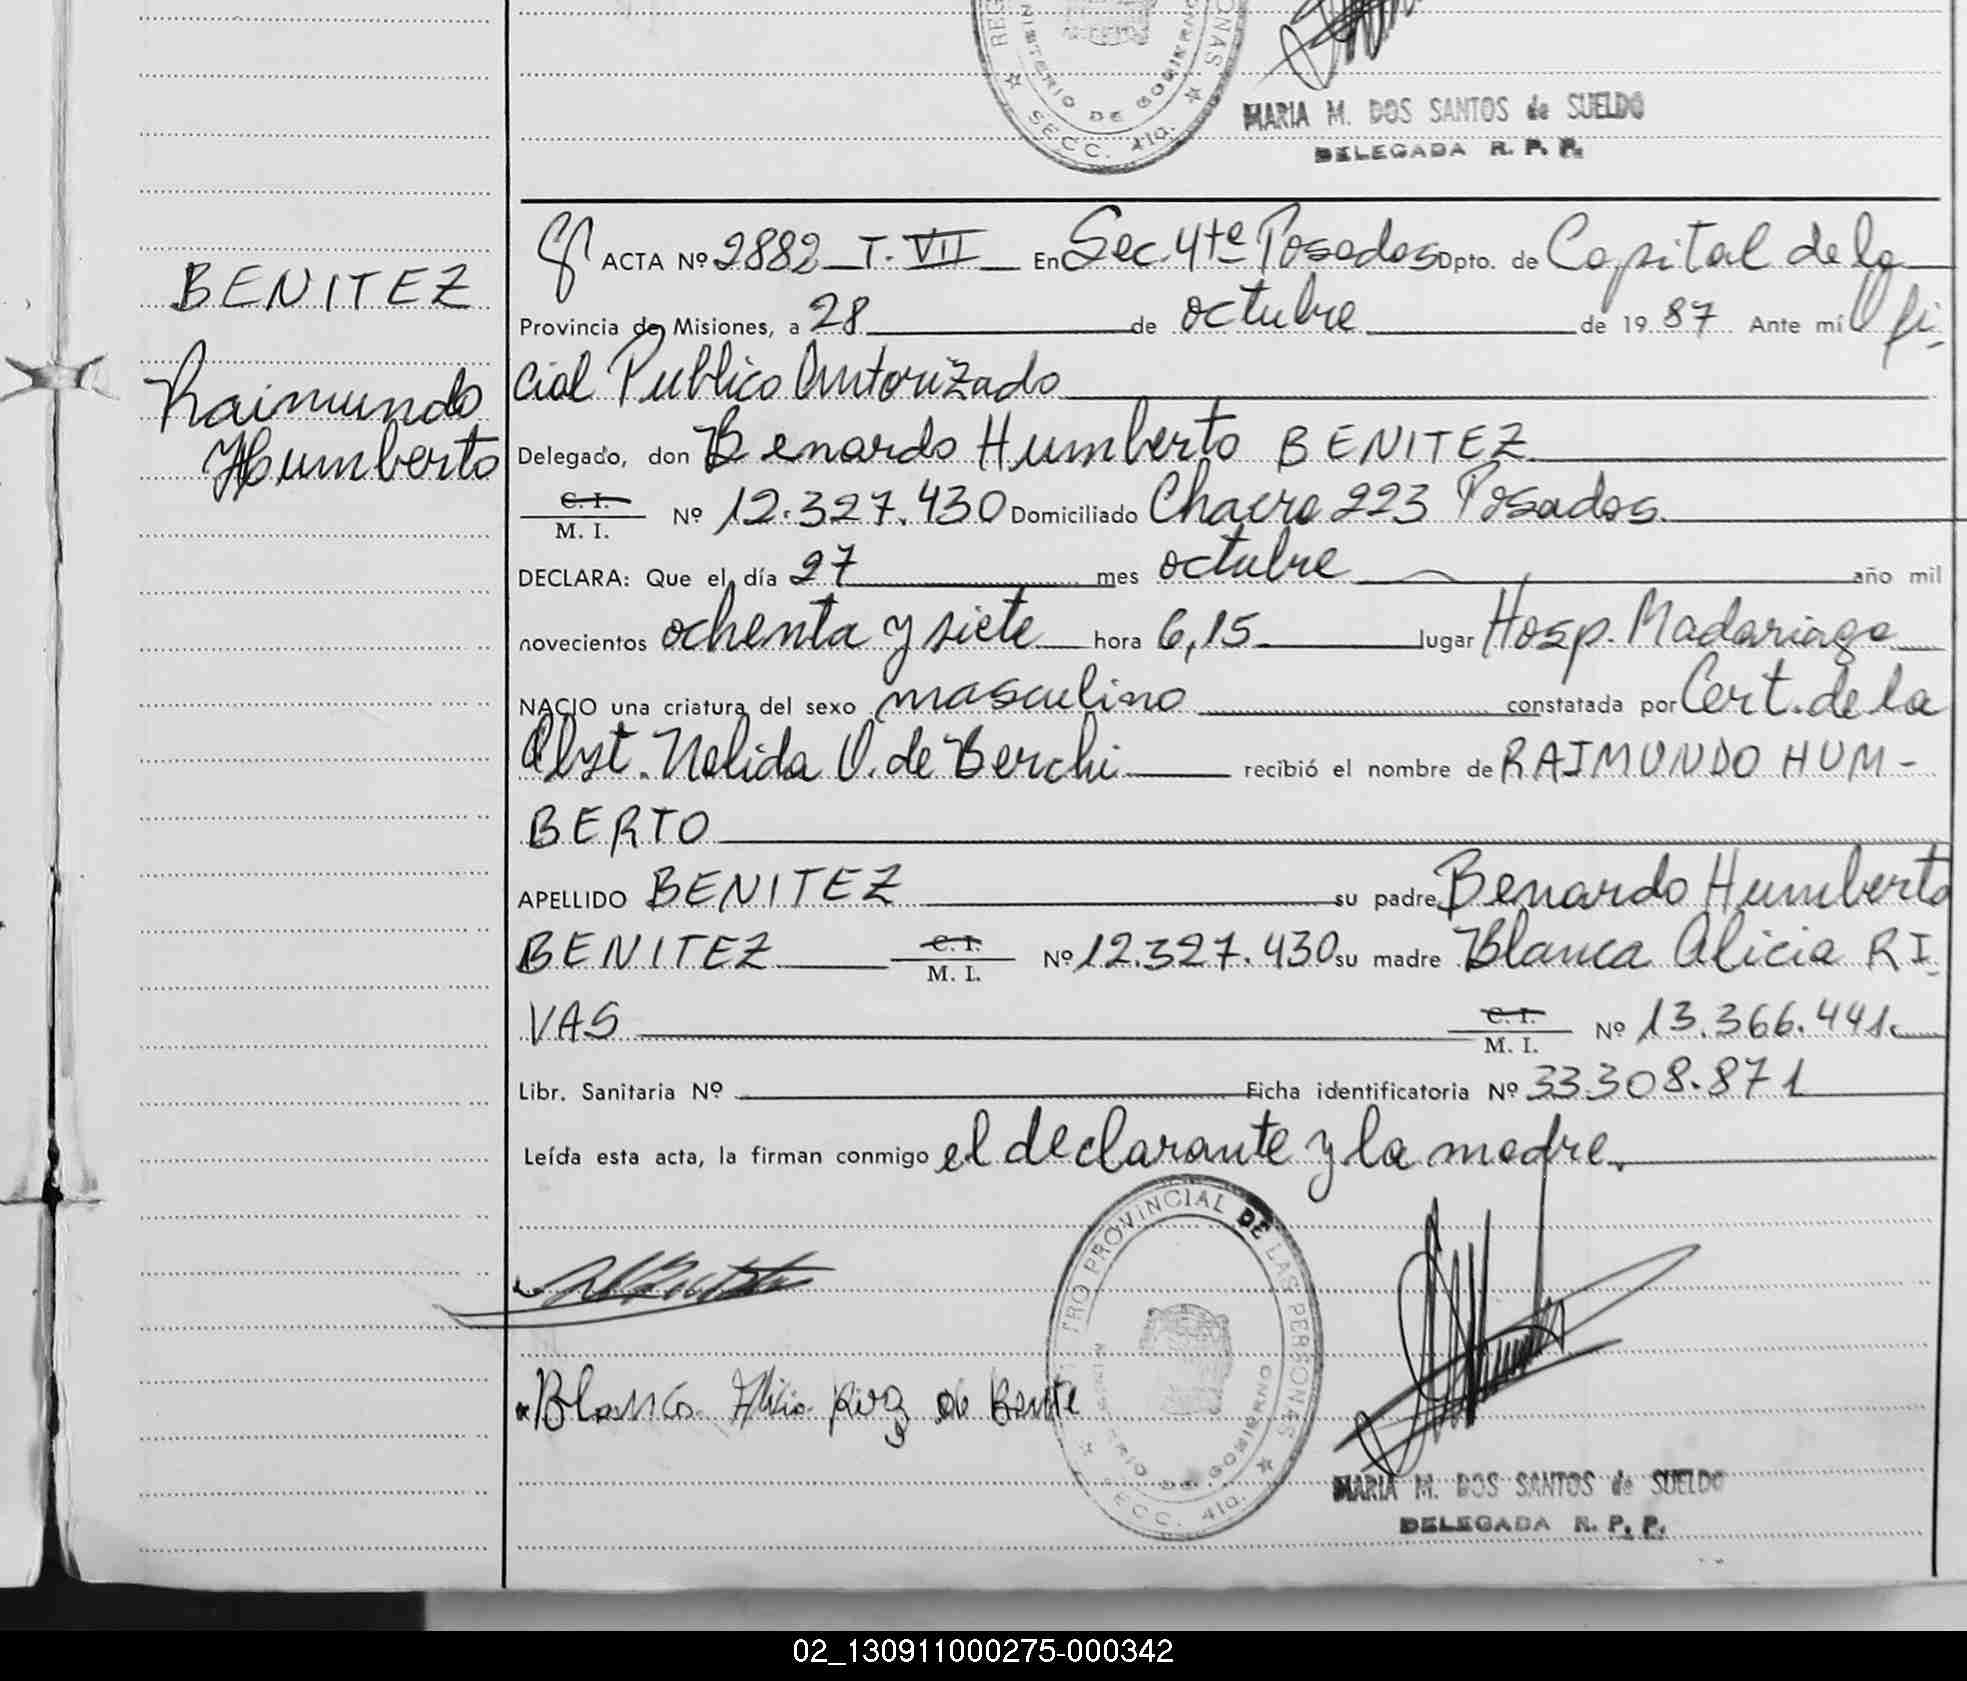 MINISTERIO DE GOBIERNO
SECC. 4ta.
MARIA M. DOS SANTOS de SUELDO
DELEGADA R. P. P.
BENITEZ
Raimundo
Humberto
ACTA Nº 2882 T. VII En Sec. 4te Posadas Dpto. de Capital de la
Provincia de Misiones, a 28 de octubre de 1987 Ante mí Ofi-
cial Publico Autorizado
Delegado, don Benardo Humberto BENITEZ
C. I.
M. I. Nº 12.327.430 Domiciliado Chacra 223 Posadas.
DECLARA: Que el día 27 mes octubre año mil
novecientos ochenta y siete hora 6,15 lugar Hosp. Madariaga
NACIO una criatura del sexo masculino constatada por Cert. de la
Obst. Nelida O. de Berchi recibió el nombre de RAIMUNDO HUM-
BERTO
APELLIDO BENITEZ su padre Benardo Humberto
BENITEZ C. I. M. I. Nº 12.327.430 su madre Blanca Alicia RI-
VAS C. I. M. I. Nº 13.366.441.
Libr. Sanitaria Nº Ficha identificatoria Nº 33.308.871
Leída esta acta, la firman conmigo el declarante y la madre.
TRO PROVINCIAL DE LAS PERSONAS
GOBIERNO
SECC. 4ta.
Blanca Alicia de
MARIA M. DOS SANTOS de SUELDO
DELEGADA R. P. P.
02_130911000275-000342